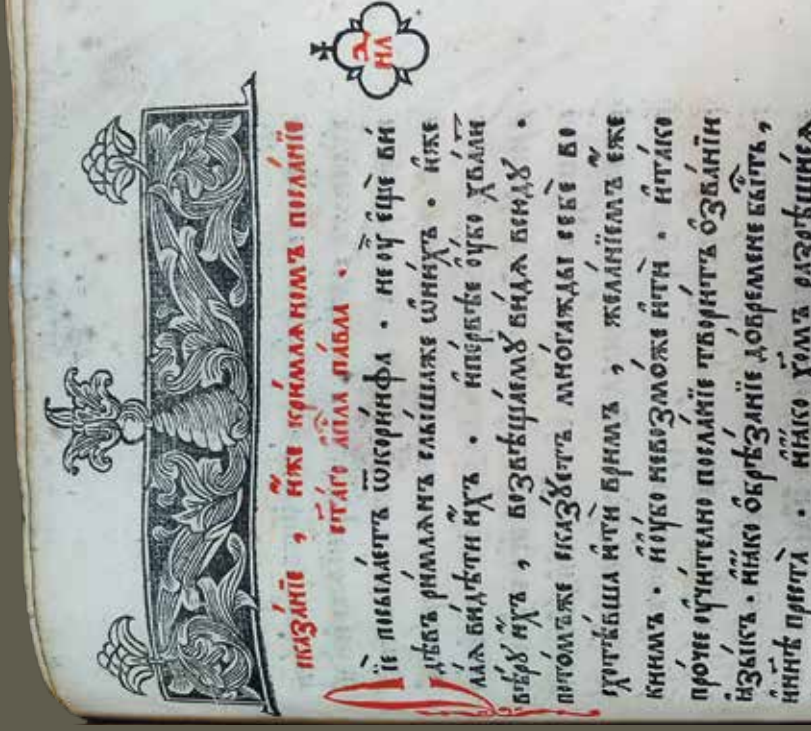 сказа́нїе , и́же кри́млѧномъ посла́нїе
ст҃а́го апⷭ҇ла па́вла .
Сїѐ посыла́етъ ѿкори́нѳа . не ᲂу҆̀ е҆щѐ ви́
дѣвъ ри́млѧнъ слы́шаже ѡ҆ни́хъ . и҆же
лаѧ ви́дѣти и҆́хъ . и҆пе́рвѣе ᲂу҆́бо хва́ли
вѣ́рꙋ и҆́хъ , возвѣща́емꙋ ви́дѧ всю́дꙋ .
пото́мъже ска́зꙋетъ мно́гажды себѐ во
схотѣ́вша и҆тѝ ври́мъ , жела́нїемъ е҆́же
кни́мъ . и҆ᲂу҆бо невозмо́же и҆тѝ . и҆та́ко
про́чее ᲂу҆чи́телно посла́нїе твори́тъ ѡ҆зва́нїи
ꙗ҆зы́къ . и҆ꙗ҆́ко ѡ҆брѣ́занїе до́времене бы́ть ,
и҆нн҃ѣ преста̀ .